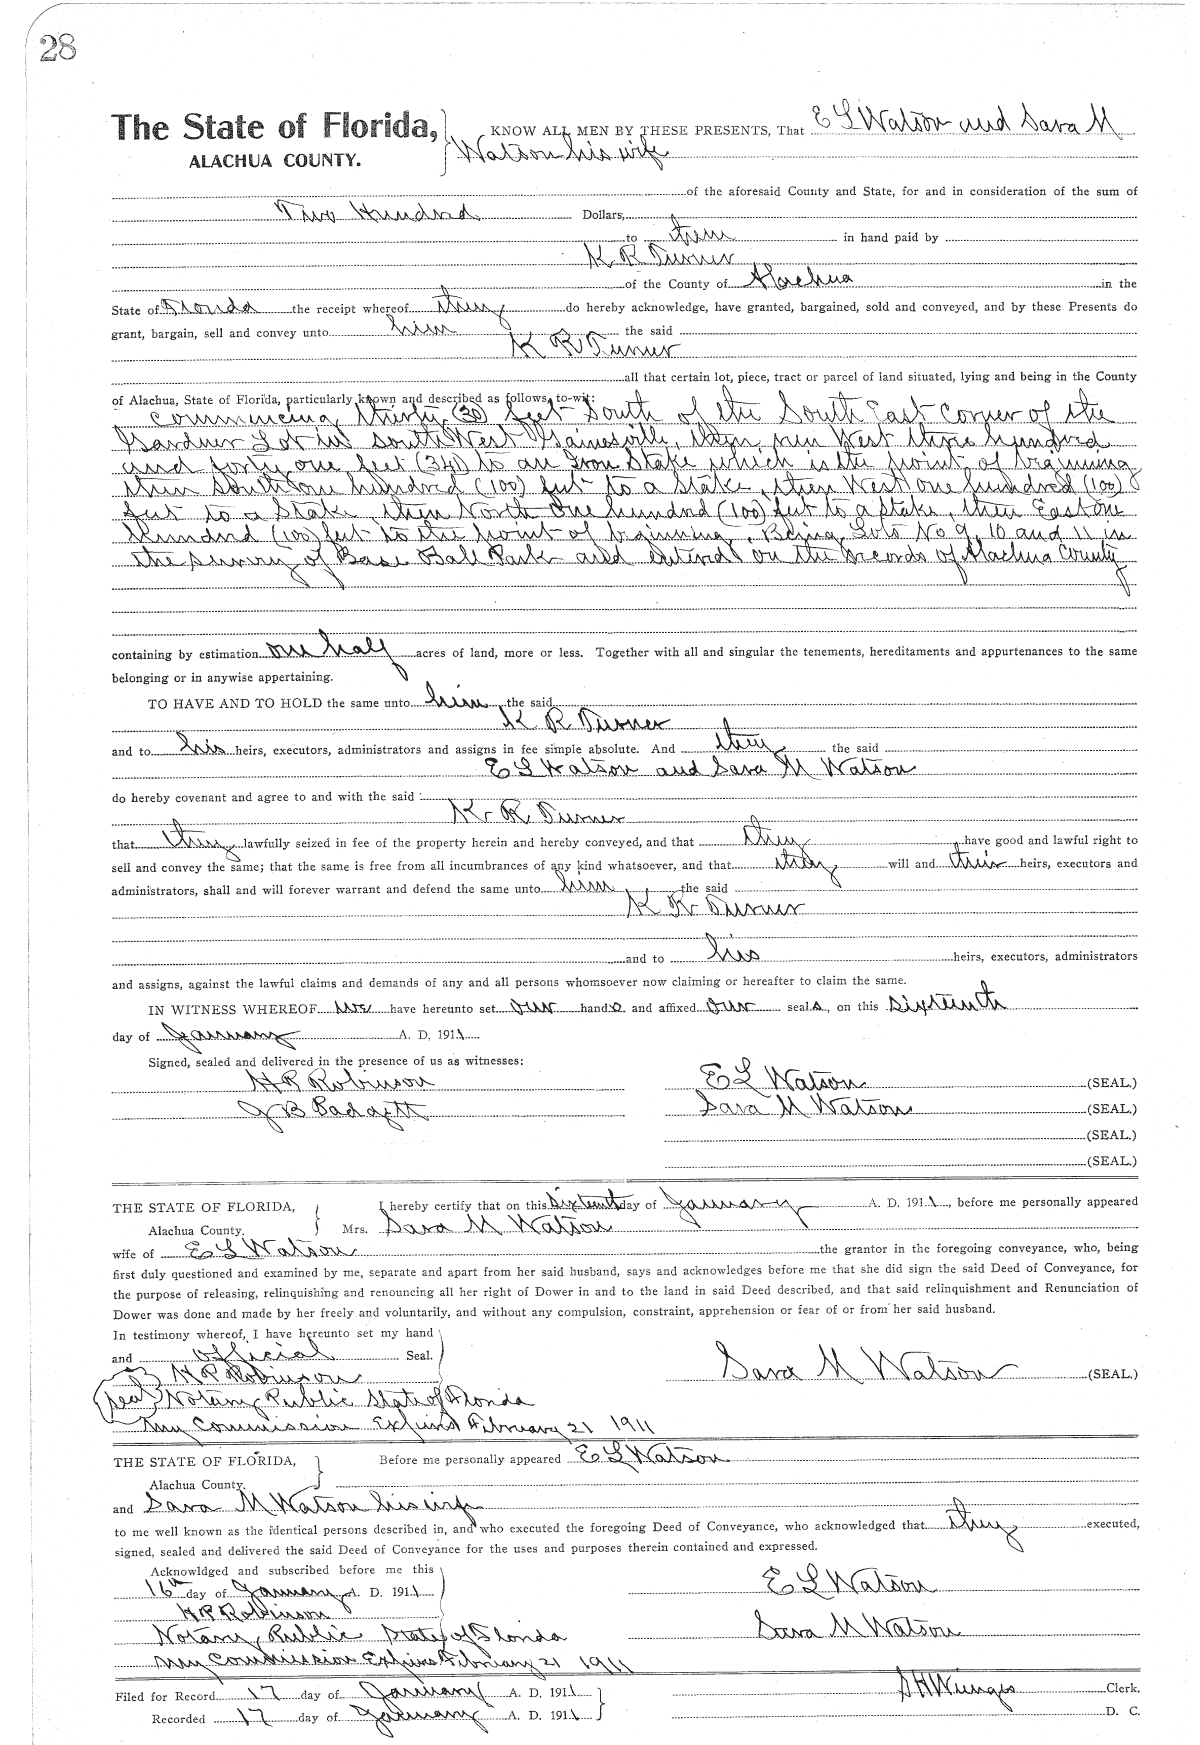 28
The State of Florida, KNOW ALL MEN BY THESE PRESENTS, That E L Watson and Sara M
ALACHUA COUNTY. Watson his wife
of the aforesaid County and State, for and in consideration of the sum of
Two Hundred Dollars,
to them in hand paid by
K R Turner
of the County of Alachua in the
State of Florida the receipt whereof they do hereby acknowledge, have granted, bargained, sold and conveyed, and by these Presents do
grant, bargain, sell and convey unto him the said
K R Turner
all that certain lot, piece, tract or parcel of land situated, lying and being in the County
of Alachua, State of Florida, particularly known and described as follows, to-wit:
Commencing thirty (30) feet South of the South East Corner of the
Gardner Lot in South West Gainesville, then run West three hundred
and forty one feet (341) to an Iron Stake which is the point of beginning
then South one hundred (100) feet to a Stake, then West one hundred (100)
feet to a Stake, then North one hundred (100) feet to a stake, then East one
Hundred (100) feet to the point of beginning. Being Lots No 9, 10 and 11 in
the survey of Base Ball Park and entered on the records of Alachua County
containing by estimation one half acres of land, more or less. Together with all and singular the tenements, hereditaments and appurtenances to the same
belonging or in anywise appertaining.
TO HAVE AND TO HOLD the same unto him the said
K R Turner
and to his heirs, executors, administrators and assigns in fee simple absolute. And they the said
E L Watson and Sara M Watson
do hereby covenant and agree to and with the said
K R Turner
that they lawfully seized in fee of the property herein and hereby conveyed, and that they have good and lawful right to
sell and convey the same; that the same is free from all incumbrances of any kind whatsoever, and that they will and their heirs, executors and
administrators, shall and will forever warrant and defend the same unto him the said
K R Turner
and to his heirs, executors, administrators
and assigns, against the lawful claims and demands of any and all persons whomsoever now claiming or hereafter to claim the same.
IN WITNESS WHEREOF we have hereunto set our hands and affixed our seals, on this Sixteenth
day of January A. D. 1911
Signed, sealed and delivered in the presence of us as witnesses:
H P Robinson E L Watson (SEAL.)
J B Padgett Sara M Watson (SEAL.)
(SEAL.)
(SEAL.)
THE STATE OF FLORIDA, I hereby certify that on this Sixteenth day of January A. D. 1911, before me personally appeared
Alachua County. Mrs. Sara M Watson
wife of E L Watson the grantor in the foregoing conveyance, who, being
first duly questioned and examined by me, separate and apart from her said husband, says and acknowledges before me that she did sign the said Deed of Conveyance, for
the purpose of releasing, relinquishing and renouncing all her right of Dower in and to the land in said Deed described, and that said relinquishment and Renunciation of
Dower was done and made by her freely and voluntarily, and without any compulsion, constraint, apprehension or fear of or from her said husband.
In testimony whereof, I have hereunto set my hand
and official Seal.
H P Robinson Sara M Watson (SEAL)
Seal Notary Public State of Florida
My Commission Expires February 21 1911
THE STATE OF FLORIDA, Before me personally appeared E L Watson
Alachua County.
and Sara M Watson his wife
to me well known as the identical persons described in, and who executed the foregoing Deed of Conveyance, who acknowledged that they executed,
signed, sealed and delivered the said Deed of Conveyance for the uses and purposes therein contained and expressed.
Acknowldged and subscribed before me this
16th day of January A. D. 1911 E L Watson
H P Robinson
Notary Public State of Florida Sara M Watson
My Commission Expires February 21 1911
Filed for Record 17 day of January A. D. 1911 S H Wienges Clerk.
Recorded 17 day of January A. D. 1911 D. C.